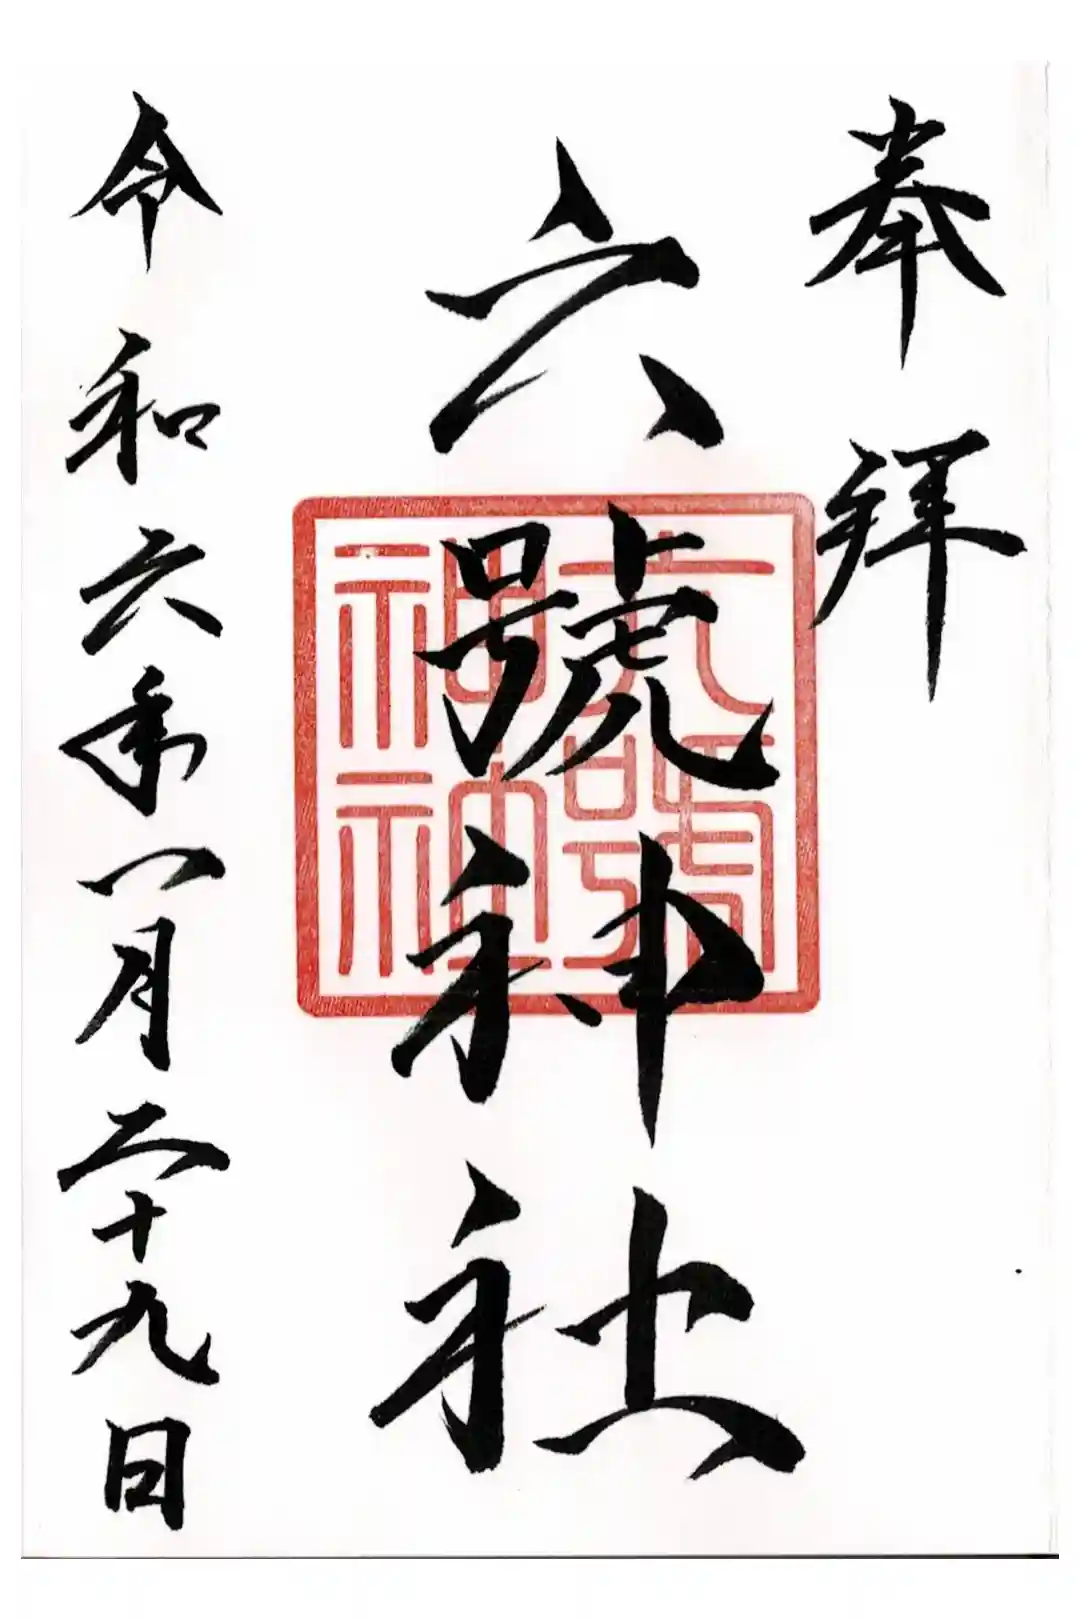 奉拝
六號神社
六號
神社
令和六年八月二十九日